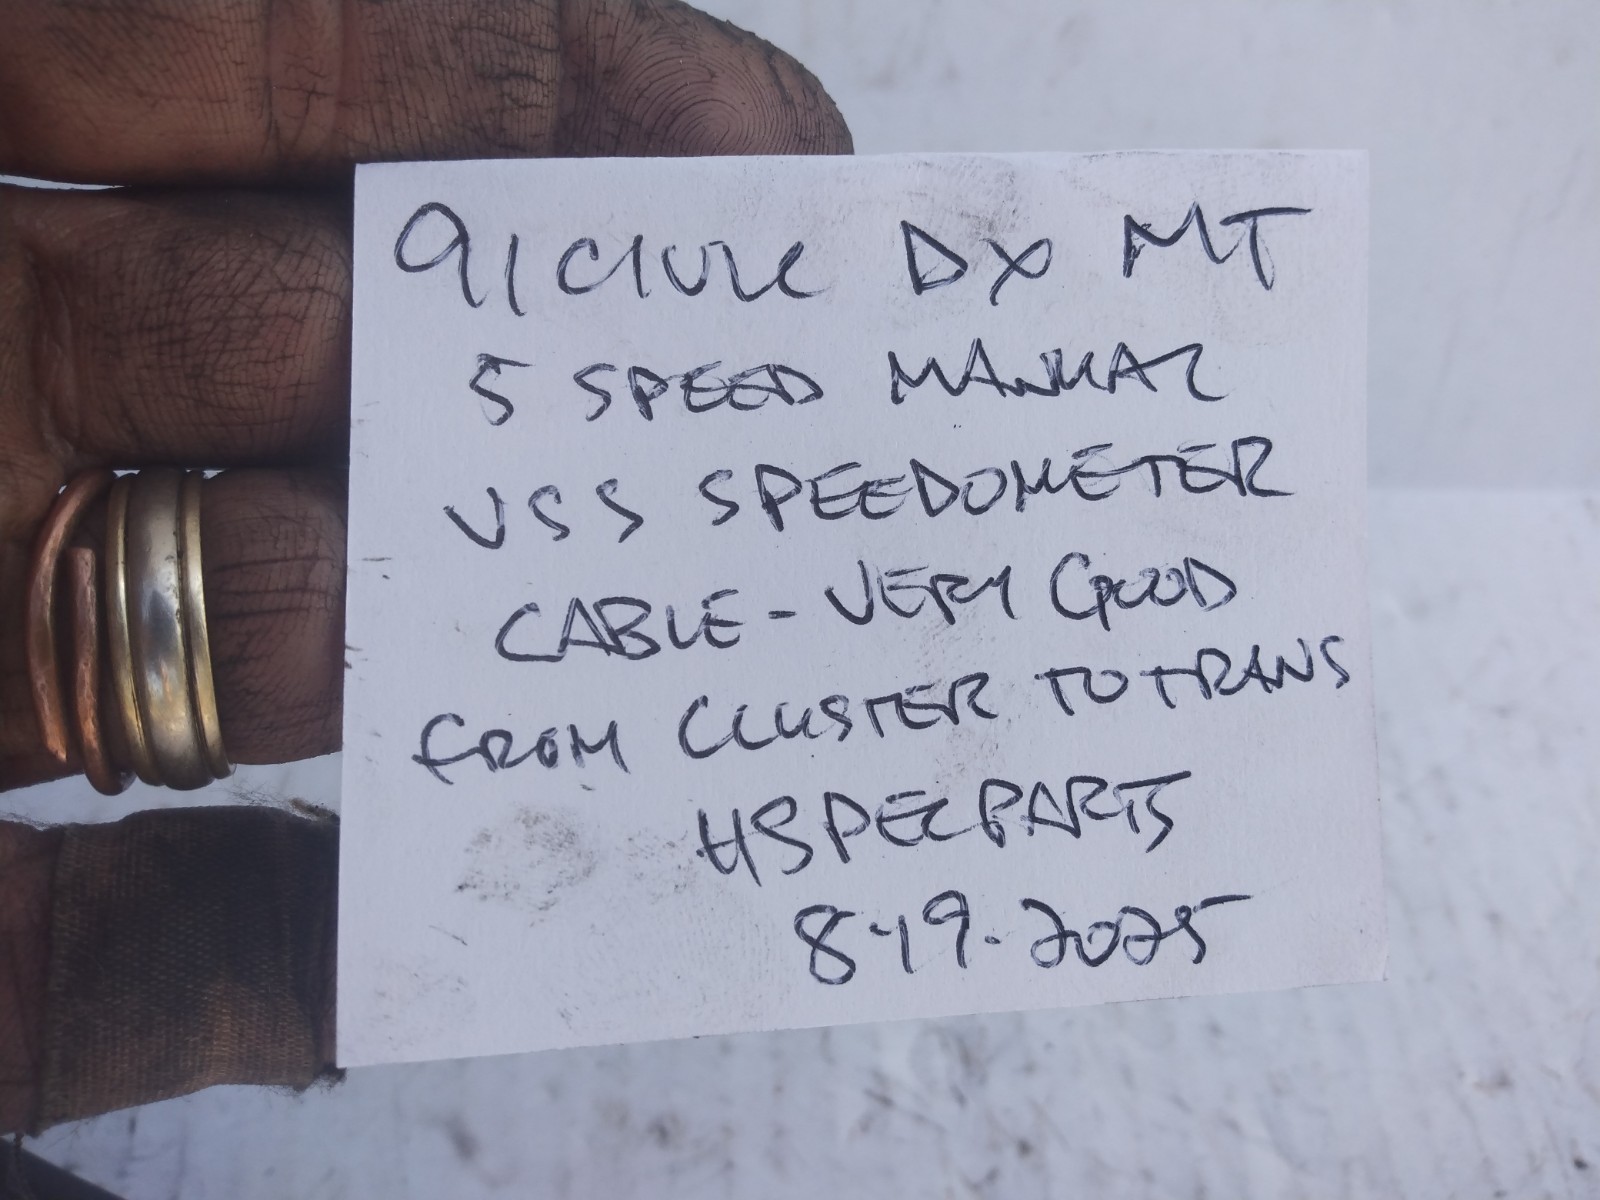 91 CIVIC DX MT
5 SPEED MANUAL
VSS SPEEDOMETER
CABLE - VERY GOOD
FROM CLUSTER TO TRANS
HSPECPARTS
8-19-2025